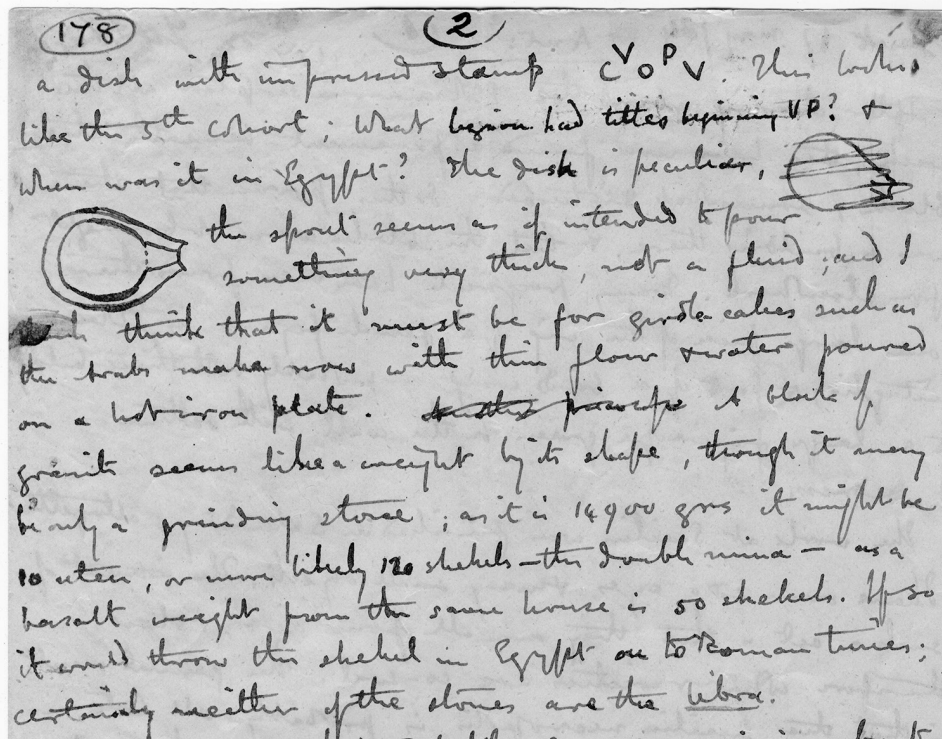 178 2
a dish with impressed stamp C V O P V. This looks
like the 5th Cohort; What legion had titles beginning VP? +
when was it in Egypt? The dish is peculiar,
the spout seems as if intended to pour
something very thick, not a fluid; and I
think that it must be for girdle cakes such as
the Arabs make now with thin flour + water poured
on a hot iron plate. A block of
granite seems like a weight by its shape, though it may
be only a grinding stone; as it is 14900 grs it might be
10 uten, or more likely 120 shekels – the double mina – as a
basalt weight from the same house is 50 shekels. If so
it would throw the shekel in Egypt on to Roman times;
certainly neither of the stones are the libra.